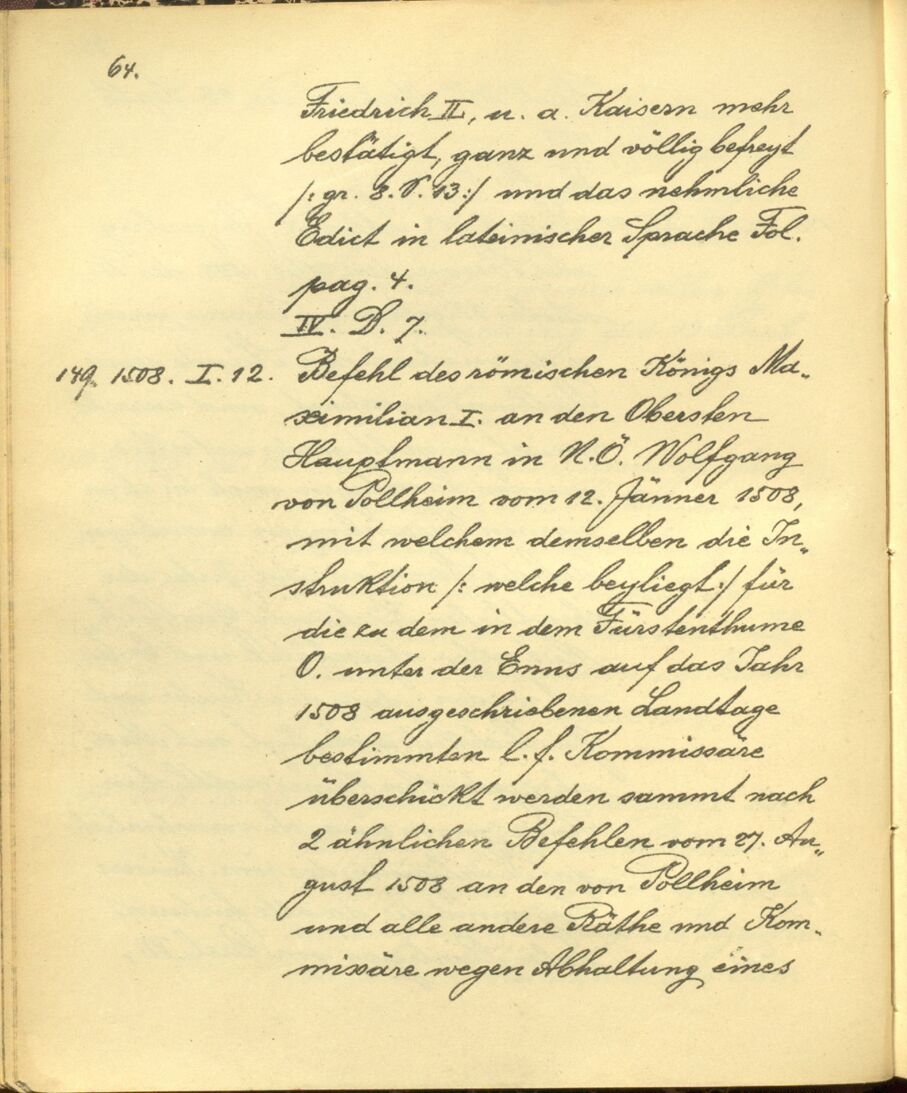 64.
Friedrich II, u. a. Kaisern mehr
bestätigt, ganz und völlig befreyt
/: gr. 8. P. 13:/ und das nehmliche
Edict in lateinischer Sprache Fol.
pag. 4.
IV. D. 7.
149. 1508. I. 12. Befehl des römischen Königs Ma„
ximilian I. an den Obersten
Hauptmann in N.Ö. Wolfgang
von Pollheim vom 12. Jänner 1508,
mit welchem demselben die In„
struktion /: welche beyliegt:/ für
die zu dem in dem Fürstenthume
O. unter der Enns auf das Jahr
1508 ausgeschriebenen Landtage
bestimmten l. f. Kommissäre
überschickt werden sammt nach
2 ähnlichen Befehlen vom 27. Au„
gust 1508 an den von Pollheim
und alle andere Räthe und Kom„
missäre wegen Abhaltung eines